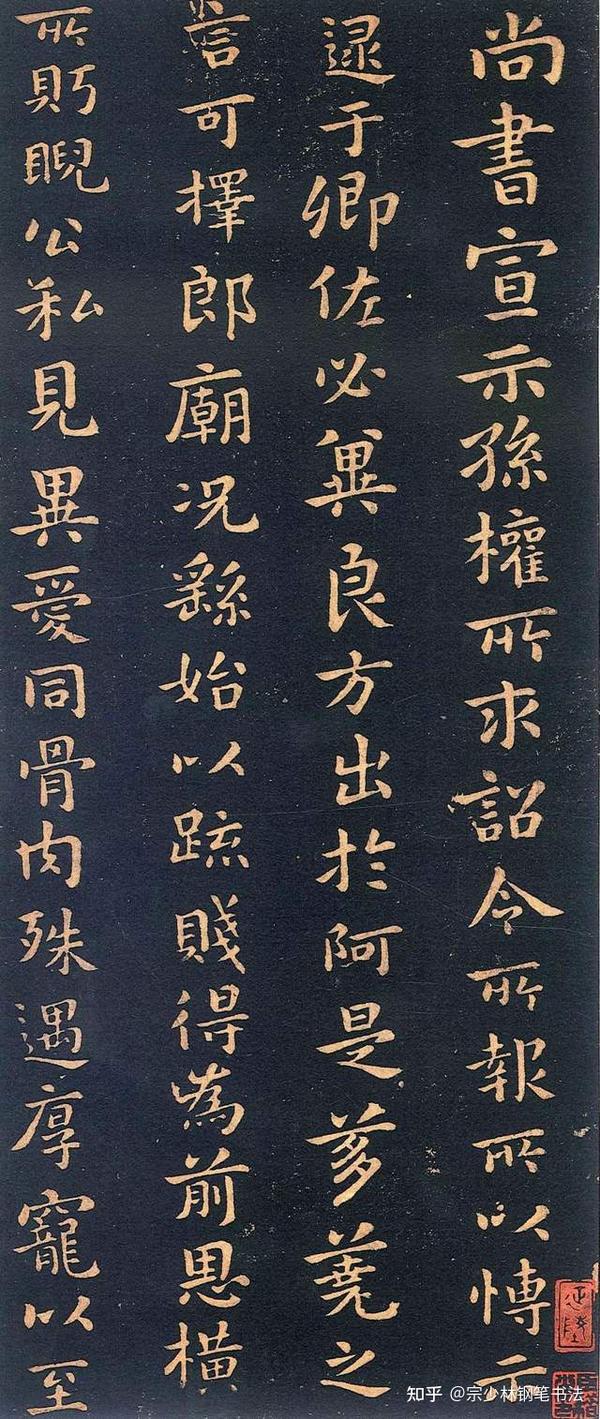 尚書宣示孫權所求詔令所報所以愽示
逮于卿佐必兾良方出於阿是芻蕘之
言可擇郎廟况繇始以踈賤得為前恩横
所眄睨公私見異愛同骨肉殊遇厚寵以至
知乎 @宗少林钢笔书法